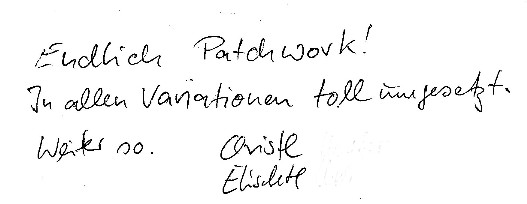 Endlich Patchwork!
In allen Variationen toll umgesetzt.
Weiter so. Christl